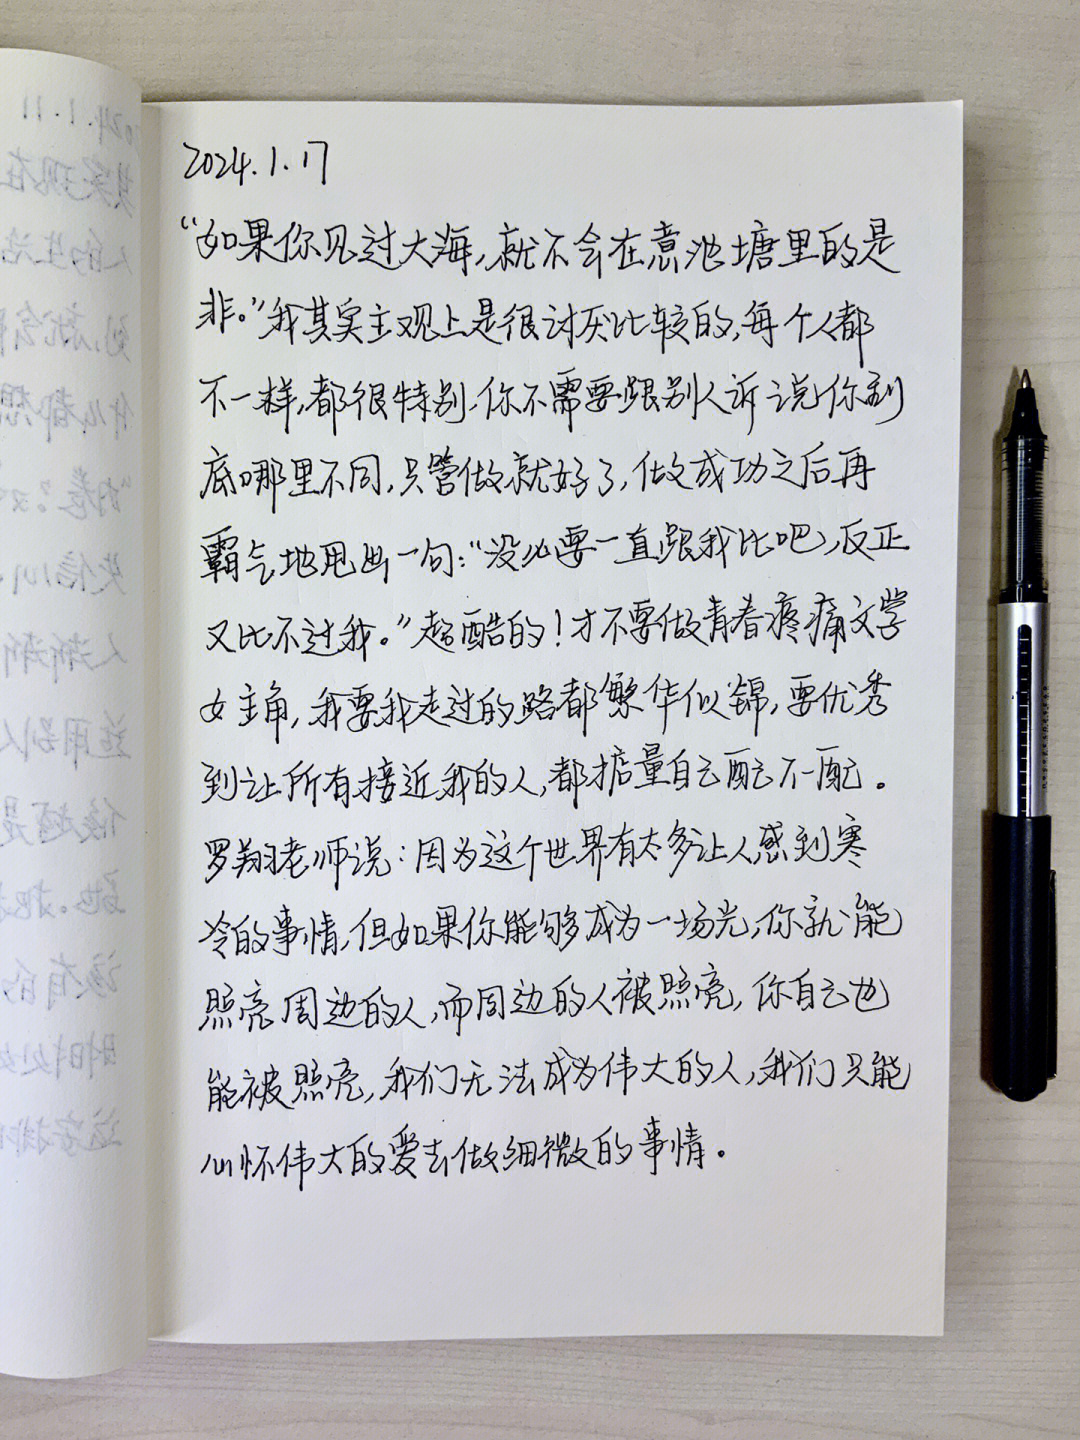 2024.1.17
“如果你见过大海,就不会在意池塘里的是
非。”我其实主观上是很讨厌比较的,每个人都
不一样,都很特别.你不需要跟别人诉说你到
底哪里不同,只管做就好了,做成功之后再
霸气地甩出一句:“没必要一直跟我比吧,反正
又比不过我。”超酷的!才不要做青春疼痛文学
女主角,我要我走过的路都繁华似锦,要优秀
到让所有接近我的人,都掂量自己配不配。
罗翔老师说:因为这个世界有太多让人感到寒
冷的事情,但如果你能够成为一场光,你就能
照亮周边的人,而周边的人被照亮,你自己也
能被照亮,我们无法成为伟大的人,我们只能
心怀伟大的爱去做细微的事情。
2024.1.11
其实现在
人的生活